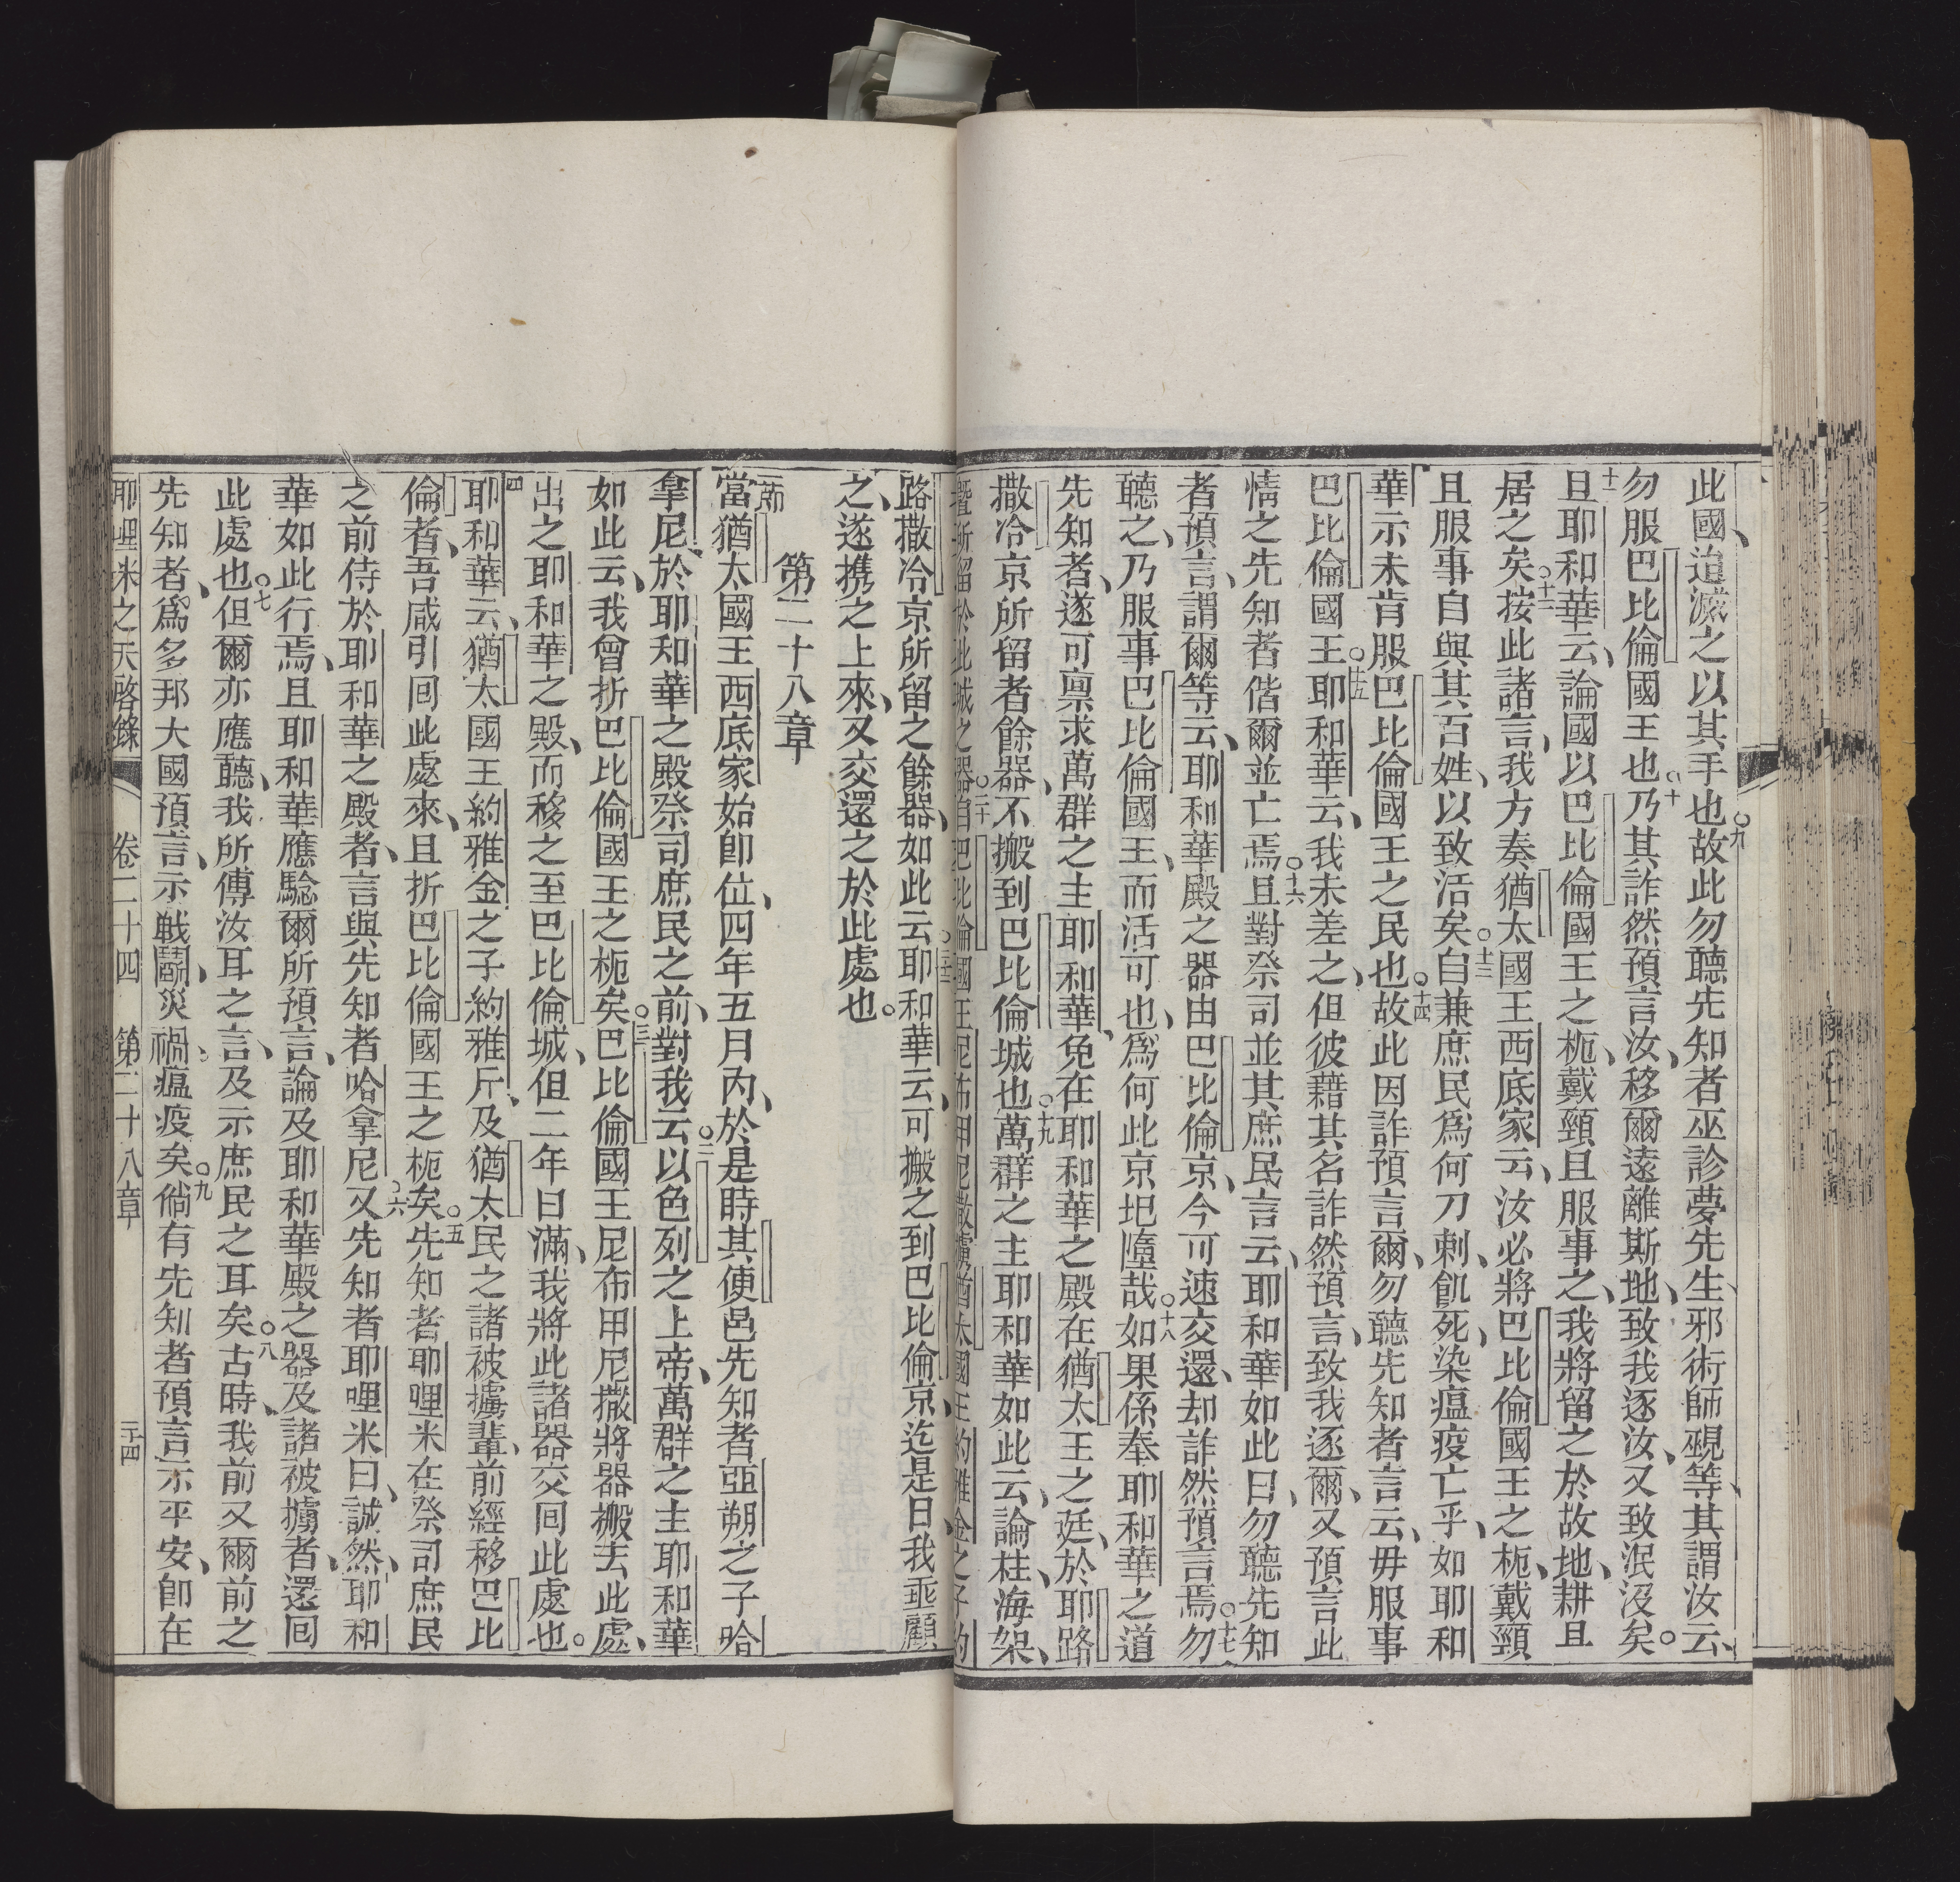 此國、迨滅之以其手也○九故此勿聽先知者巫診夢先生、邪術師覡等、其謂汝云、
勿服巴比倫國王也○十乃其詐然預言汝、移爾遠離斯地、致我逐汝、又致泯沒矣○
十一且耶和華云、論國以巴比倫國王之枙、戴頸且服事之、我將留之於故地、耕且
居之矣○十二按此諸言、我方奏猶太國王西底家云、汝必將巴比倫國王之枙、戴頸
且服事自與其百姓、以致活矣○十三自兼庶民爲何刀刺、飢死、染瘟疫亡乎、如耶和
華示未肯服巴比倫國王之民也○十四故此因詐預言爾、勿聽先知者言云、毋服事
巴比倫國王○十五耶和華云、我未差之、但彼藉其名詐然預言、致我逐爾、又預言此
情之先知者偕爾並亡焉○十六且對祭司並其庶民言云、耶和華如此曰、勿聽先知
者預言、謂爾等云、耶和華殿之器由巴比倫京、今可速交還、却詐然預言焉○十七勿
聽之、乃服事巴比倫國王、而活可也、爲何此京圯墮哉○十八如果係奉耶和華之道
先知者、遂可禀求萬群之主耶和華、免在耶和華之殿在猶太王之廷、於耶路
撒冷京所留者餘器、不搬到巴比倫城也○十九萬群之主耶和華如此云、論柱、海、架、
暨所留於此城之器○二十自巴比倫國王尼布甲尼撒擄猶太國王約雅金之子約
路撒冷京所留之餘器、如此云○耶和華云、可搬之到巴比倫京、迄是日、我垂顧
之、遂携之上來、又交還之於此處也○
第二十八章
一節當猶太國王西底家始卽位、四年五月內、於是時其便邑先知者亞朔之子哈
拿尼、於耶和華之殿祭司庶民之前、對我云○二以色列之上帝、萬群之主耶和華
如此云、我曾折巴比倫國王之枙矣○三巴比倫國王尼布甲尼撒將器搬去此處、
出之耶和華之殿、而移之至巴比倫城、但二年日滿、我將此諸器交回此處也○
四耶和華云、猶太國王約雅金之子約雅斤、及猶太民之諸被擄輩、前經移巴比
倫者、吾咸引回此處來、且折巴比倫國王之枙矣○五先知者耶哩米在祭司庶民
之前侍於耶和華之殿者、言與先知者哈拿尼○六又先知者耶哩米曰、誠然、耶和
華如此行焉、且耶和華應騐爾所預言、論及耶和華殿之器及諸被擄者、還回
此處也○七但爾亦應聽、我所傳汝耳之言、及示庶民之耳矣○八古時、我前又爾前之
先知者、爲多邦大國預言、示戰鬬、災禍、瘟疫矣○九倘有先知者預言示平安、卽在
耶哩米之天啓錄 卷二十四 第二十八章 三十四